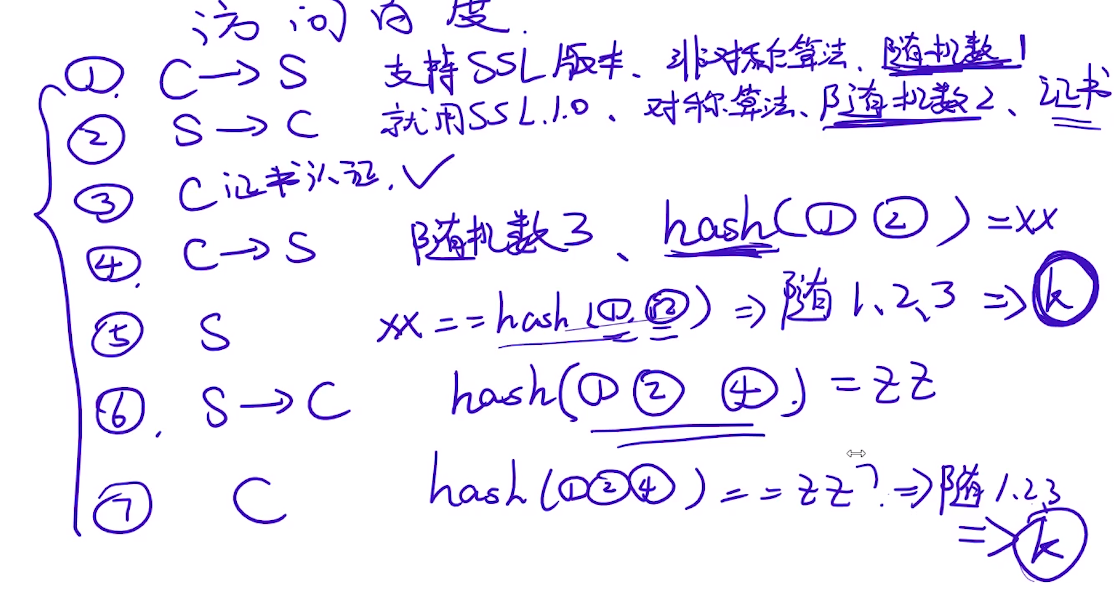 访问百度.
①. C→S 支持SSL版本、非对称算法、随机数1
② S→C 就用SSL.1.0、对称算法、随机数2、证书
③ C证书认证.✓
④. C→S 随机数3、hash(① ②)=xx
⑤ S xx==hash(①.②)⇒随1、2、3⇒k
⑥. S→C hash(① ② ④.)=zz
⑦ C hash(①②④)==zz?.⇒随1.2.3
⇒k